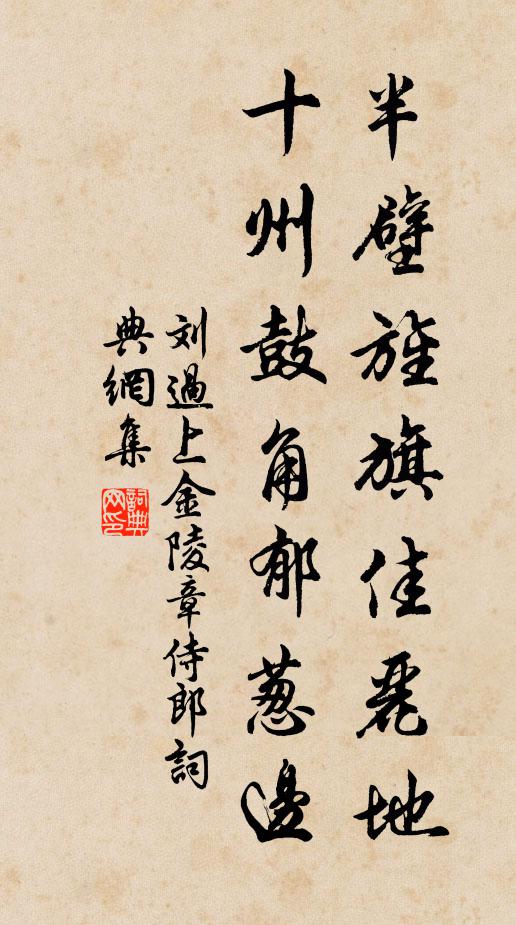 半壁旌旗佳麗地
十州鼓角郁葱邊
刘過上金陵章侍郎詞
典網集
詞典网印